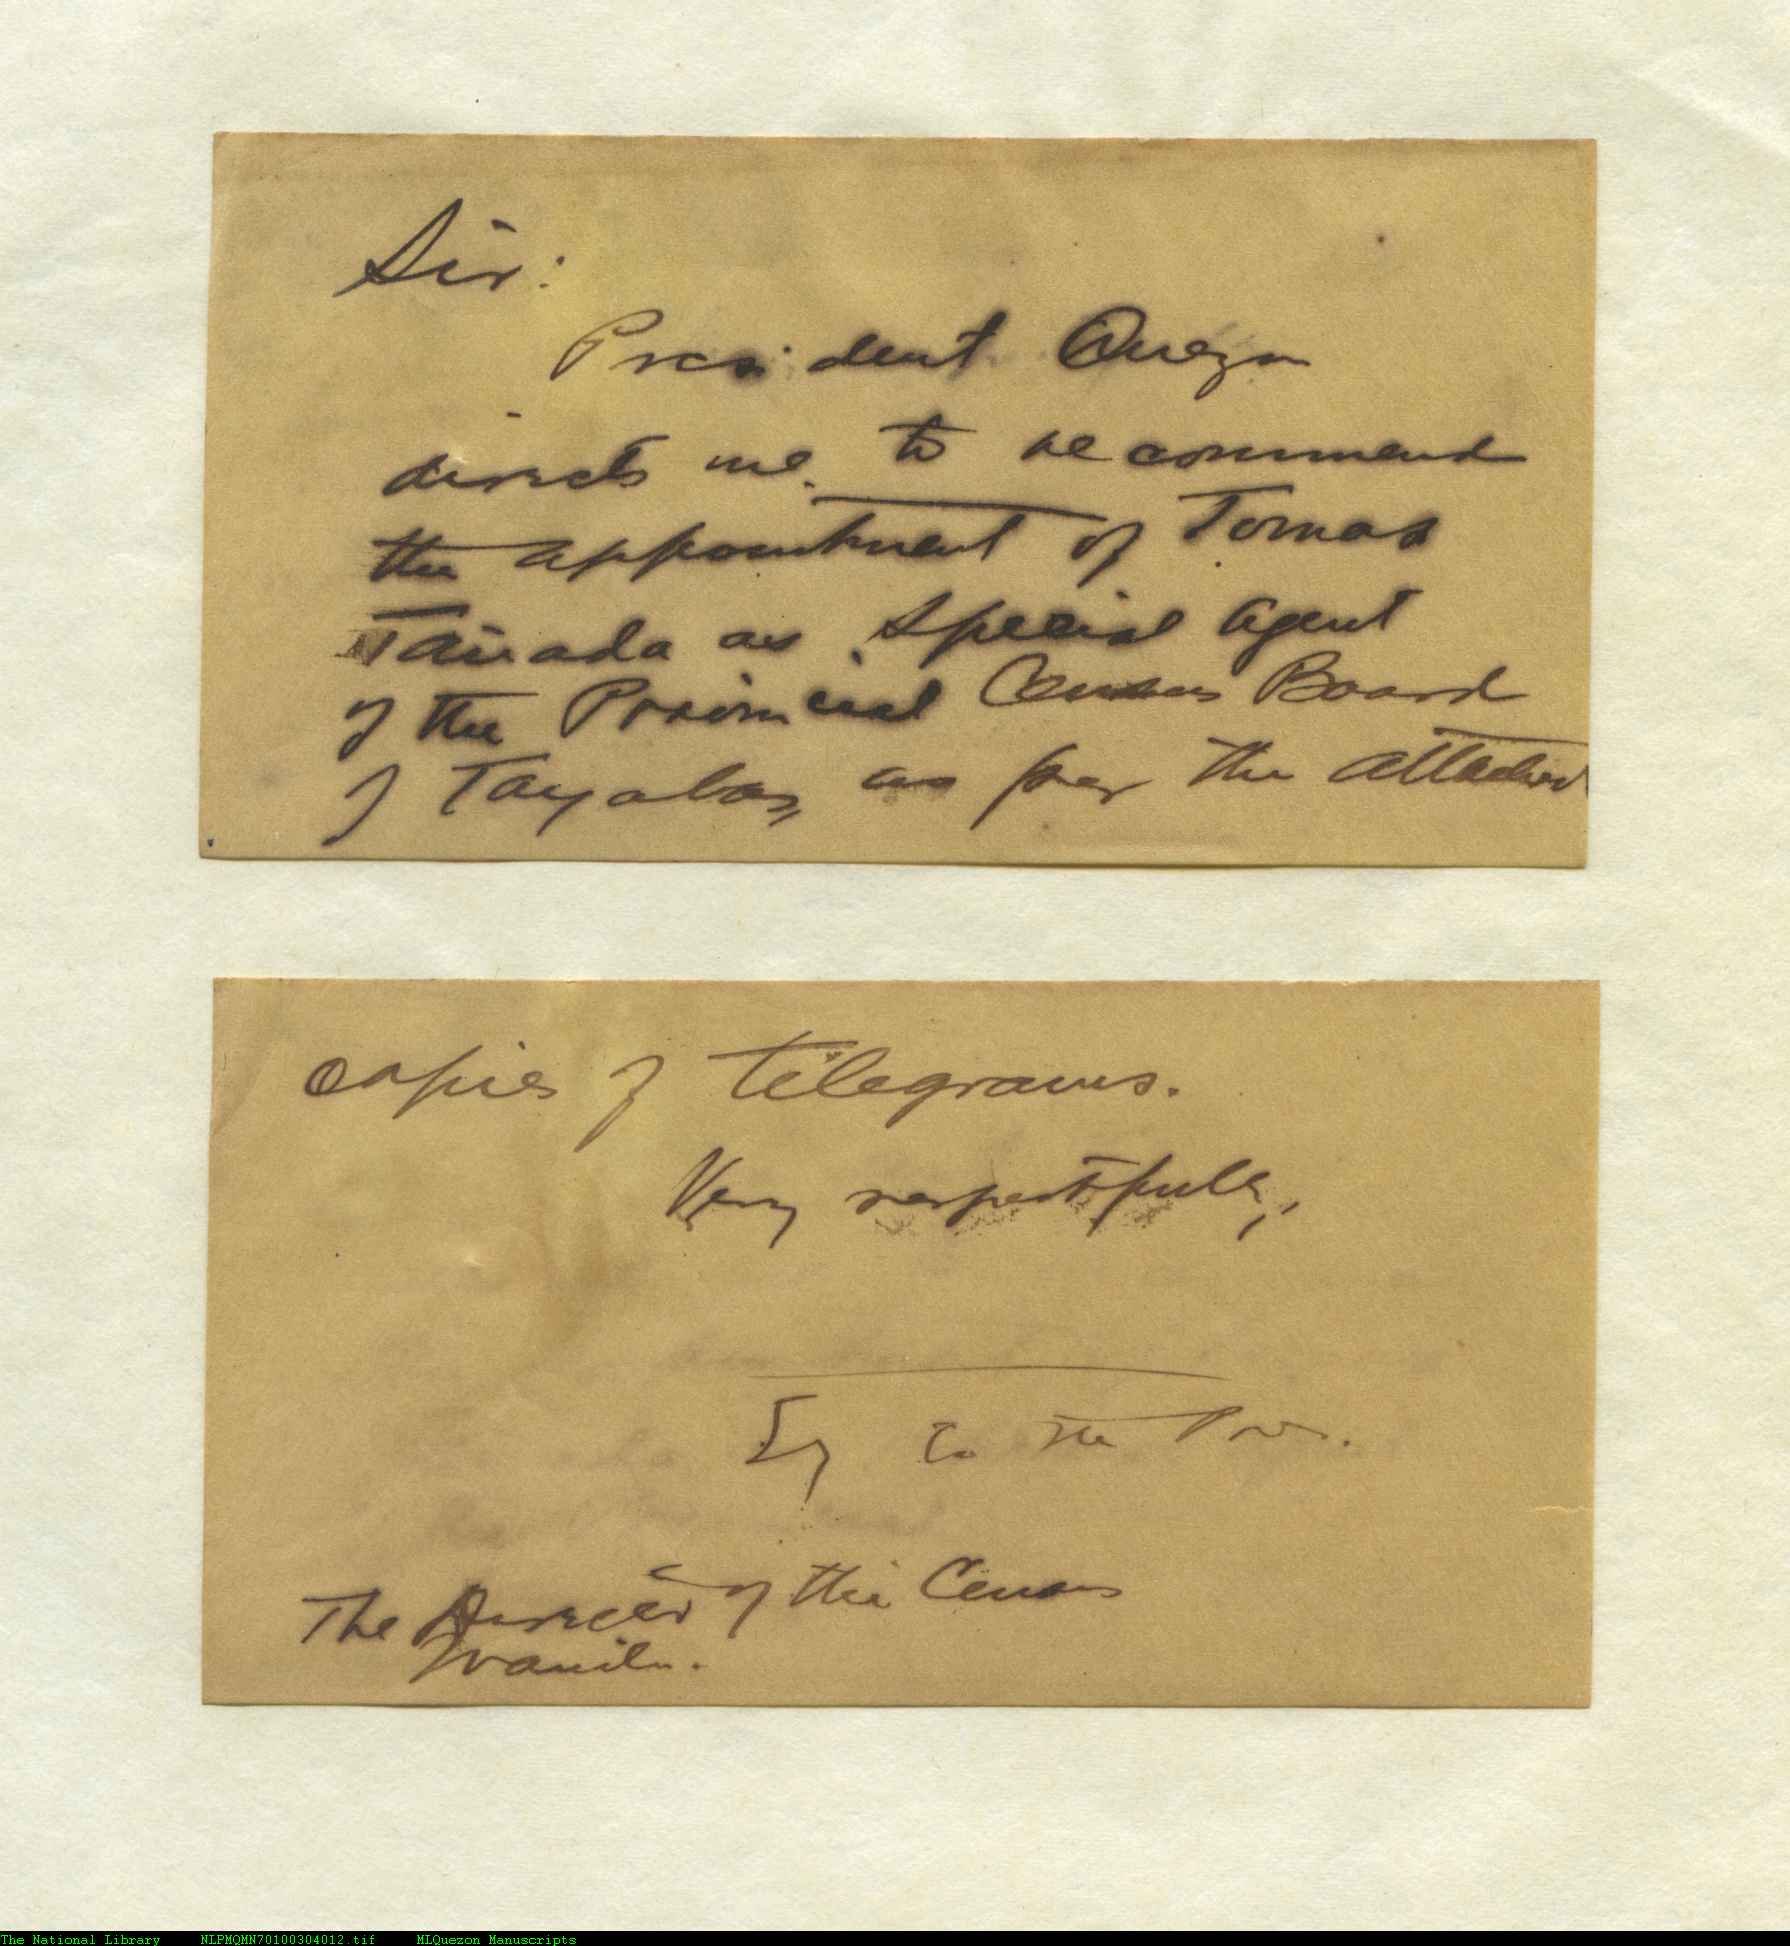 Sir:
President Quezon
directs me to recommend
the appointment of Tomas
Tañada as Special Agent
of the Provincial Census Board
of Tayabas, as per the attached
copies of telegrams.
Very respectfully,
to the Pres.
The Director of the Census
Manila.
The National Library NLPMQMN70100304012.tif MLQuezon Manuscripts